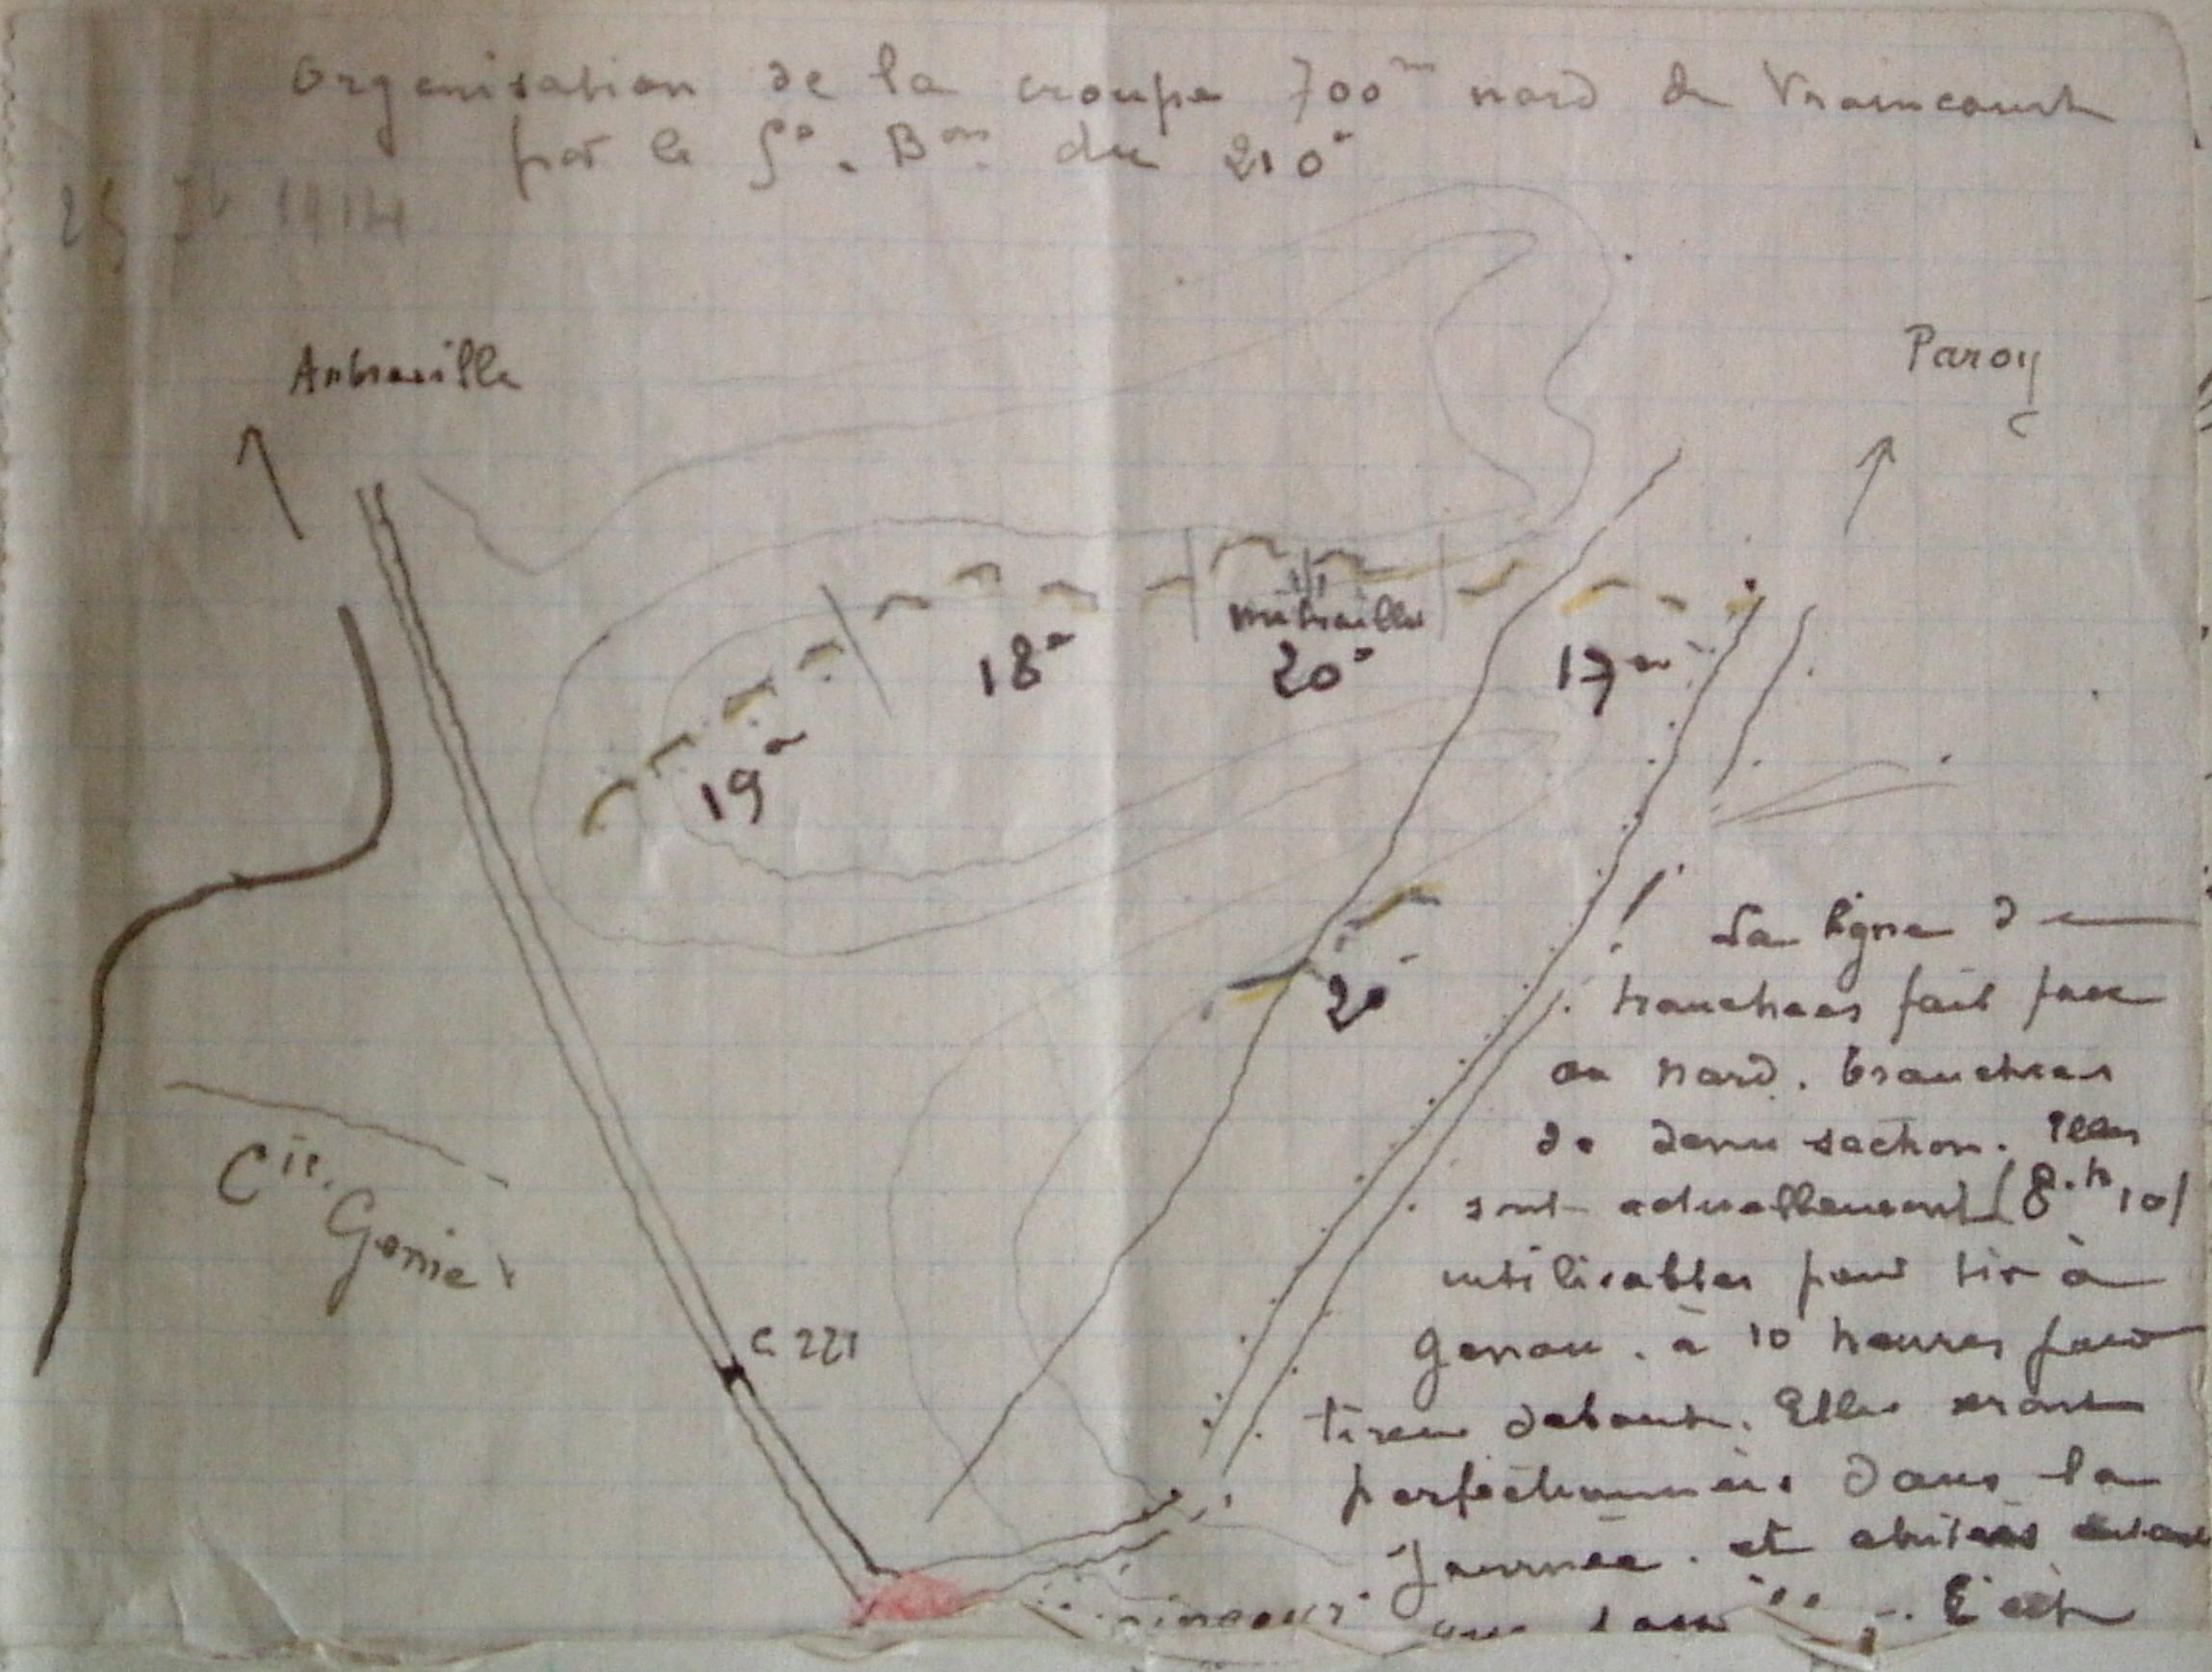 Organisation de la croupe 700m nord de Vraincourt
par le 5e. Bon. du 210e
1914
Aubreville
Paroy
mitrailles
18e
20e
17e
19e
20e
La ligne de
tranchees fait face
au nord. tranchees
de demi section. Elles
sont actuellement (8.h 10)
utilisables pour tir à
genou. à 10 heures pour
tireur debout. Elles seront
perfectionnées dans la
journée. et abritées
Cie. Genie
C 221